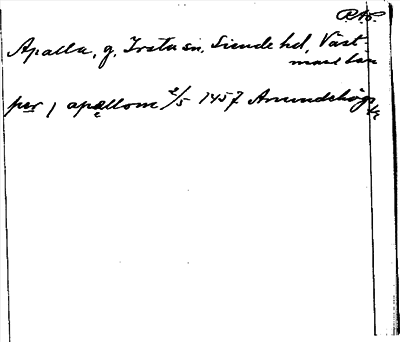 RAp
Apalla, g, Irsta sn, Siende hd, Väst-
manland
per j apallom 2/5 1457 Anundshögs